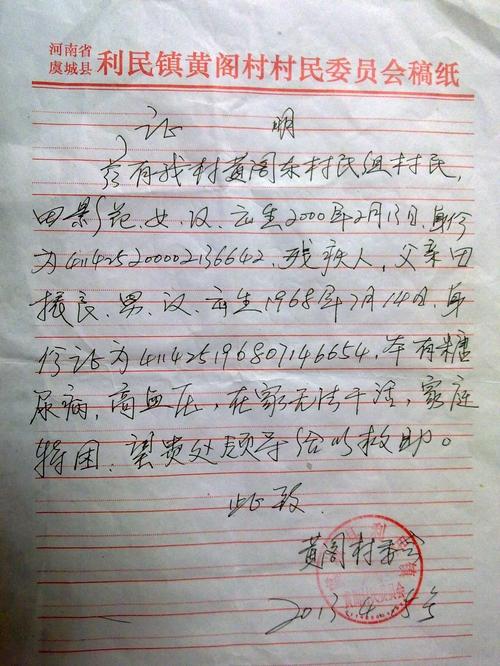 河南省
虞城县 利民镇黄阁村村民委员会稿纸
证 明
兹有我村黄阁东村民组村民,
田景苑、女、汉、出生2000年2月13日、身份
为411425200002136642、残疾人, 父亲田
振良、男、汉、出生1968年7月14日、身
份证为411425196807146654, 本有糖
尿病, 高血压, 在家无法干活, 家庭
特困、望贵处领导给以救助。
此致
黄阁村委会
2013.4.5号